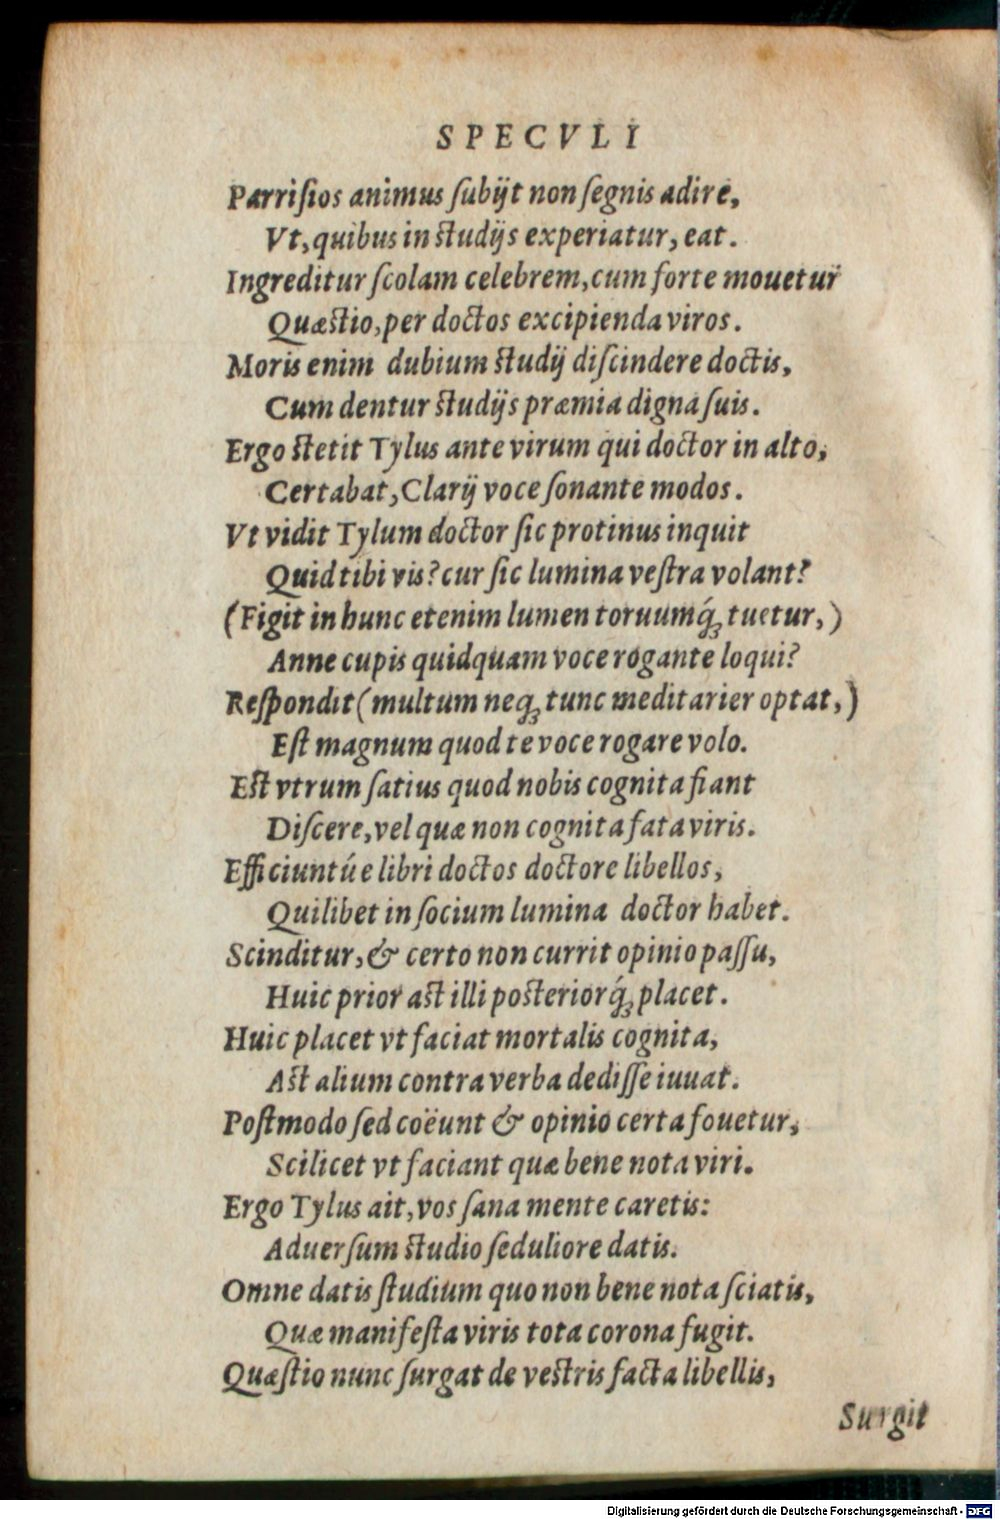 SPECVLI
Parriſios animus ſubijt non ſegnis adire,
Vt, quibus in ſtudijs experiatur, eat.
Ingreditur ſcolam celebrem, cum forte mouetur
Quæſtio, per doctos excipienda viros.
Moris enim dubium ſtudij diſcindere doctis,
Cum dentur ſtudijs præmia digna ſuis.
Ergo ſtetit Tylus ante virum qui doctor in alto,
Certabat, Clarij voce ſonante modos.
Vt vidit Tylum doctor ſic protinus inquit
Quid tibi vis? cur ſic lumina veſtra volant?
(Figit in hunc etenim lumen toruumq́ꝫ tuetur,)
Anne cupis quidquam voce rogante loqui?
Reſpondit (multum neqꝫ tunc meditarier optat,)
Eſt magnum quod te voce rogare volo.
Eſt vtrum ſatius quod nobis cognita fiant
Diſcere, vel quæ non cognita fata viris.
Efficiuntúe libri doctos doctore libellos,
Quilibet in ſocium lumina doctor habet.
Scinditur, & certo non currit opinio paſſu,
Huic prior aſt illi poſteriorq́ꝫ placet.
Huic placet vt faciat mortalis cognita,
Aſt alium contra verba dediſſe iuuat.
Poſtmodo ſed coëunt & opinio certa fouetur,
Scilicet vt faciant quæ bene nota viri.
Ergo Tylus ait, vos ſana mente caretis:
Aduerſum ſtudio ſeduliore datis.
Omne datis ſtudium quo non bene nota ſciatis,
Quæ manifeſta viris tota corona fugit.
Quæſtio nunc ſurgat de veſtris facta libellis,
Surgit
Digitalisierung gefördert durch die Deutsche Forschungsgemeinschaft - DFG